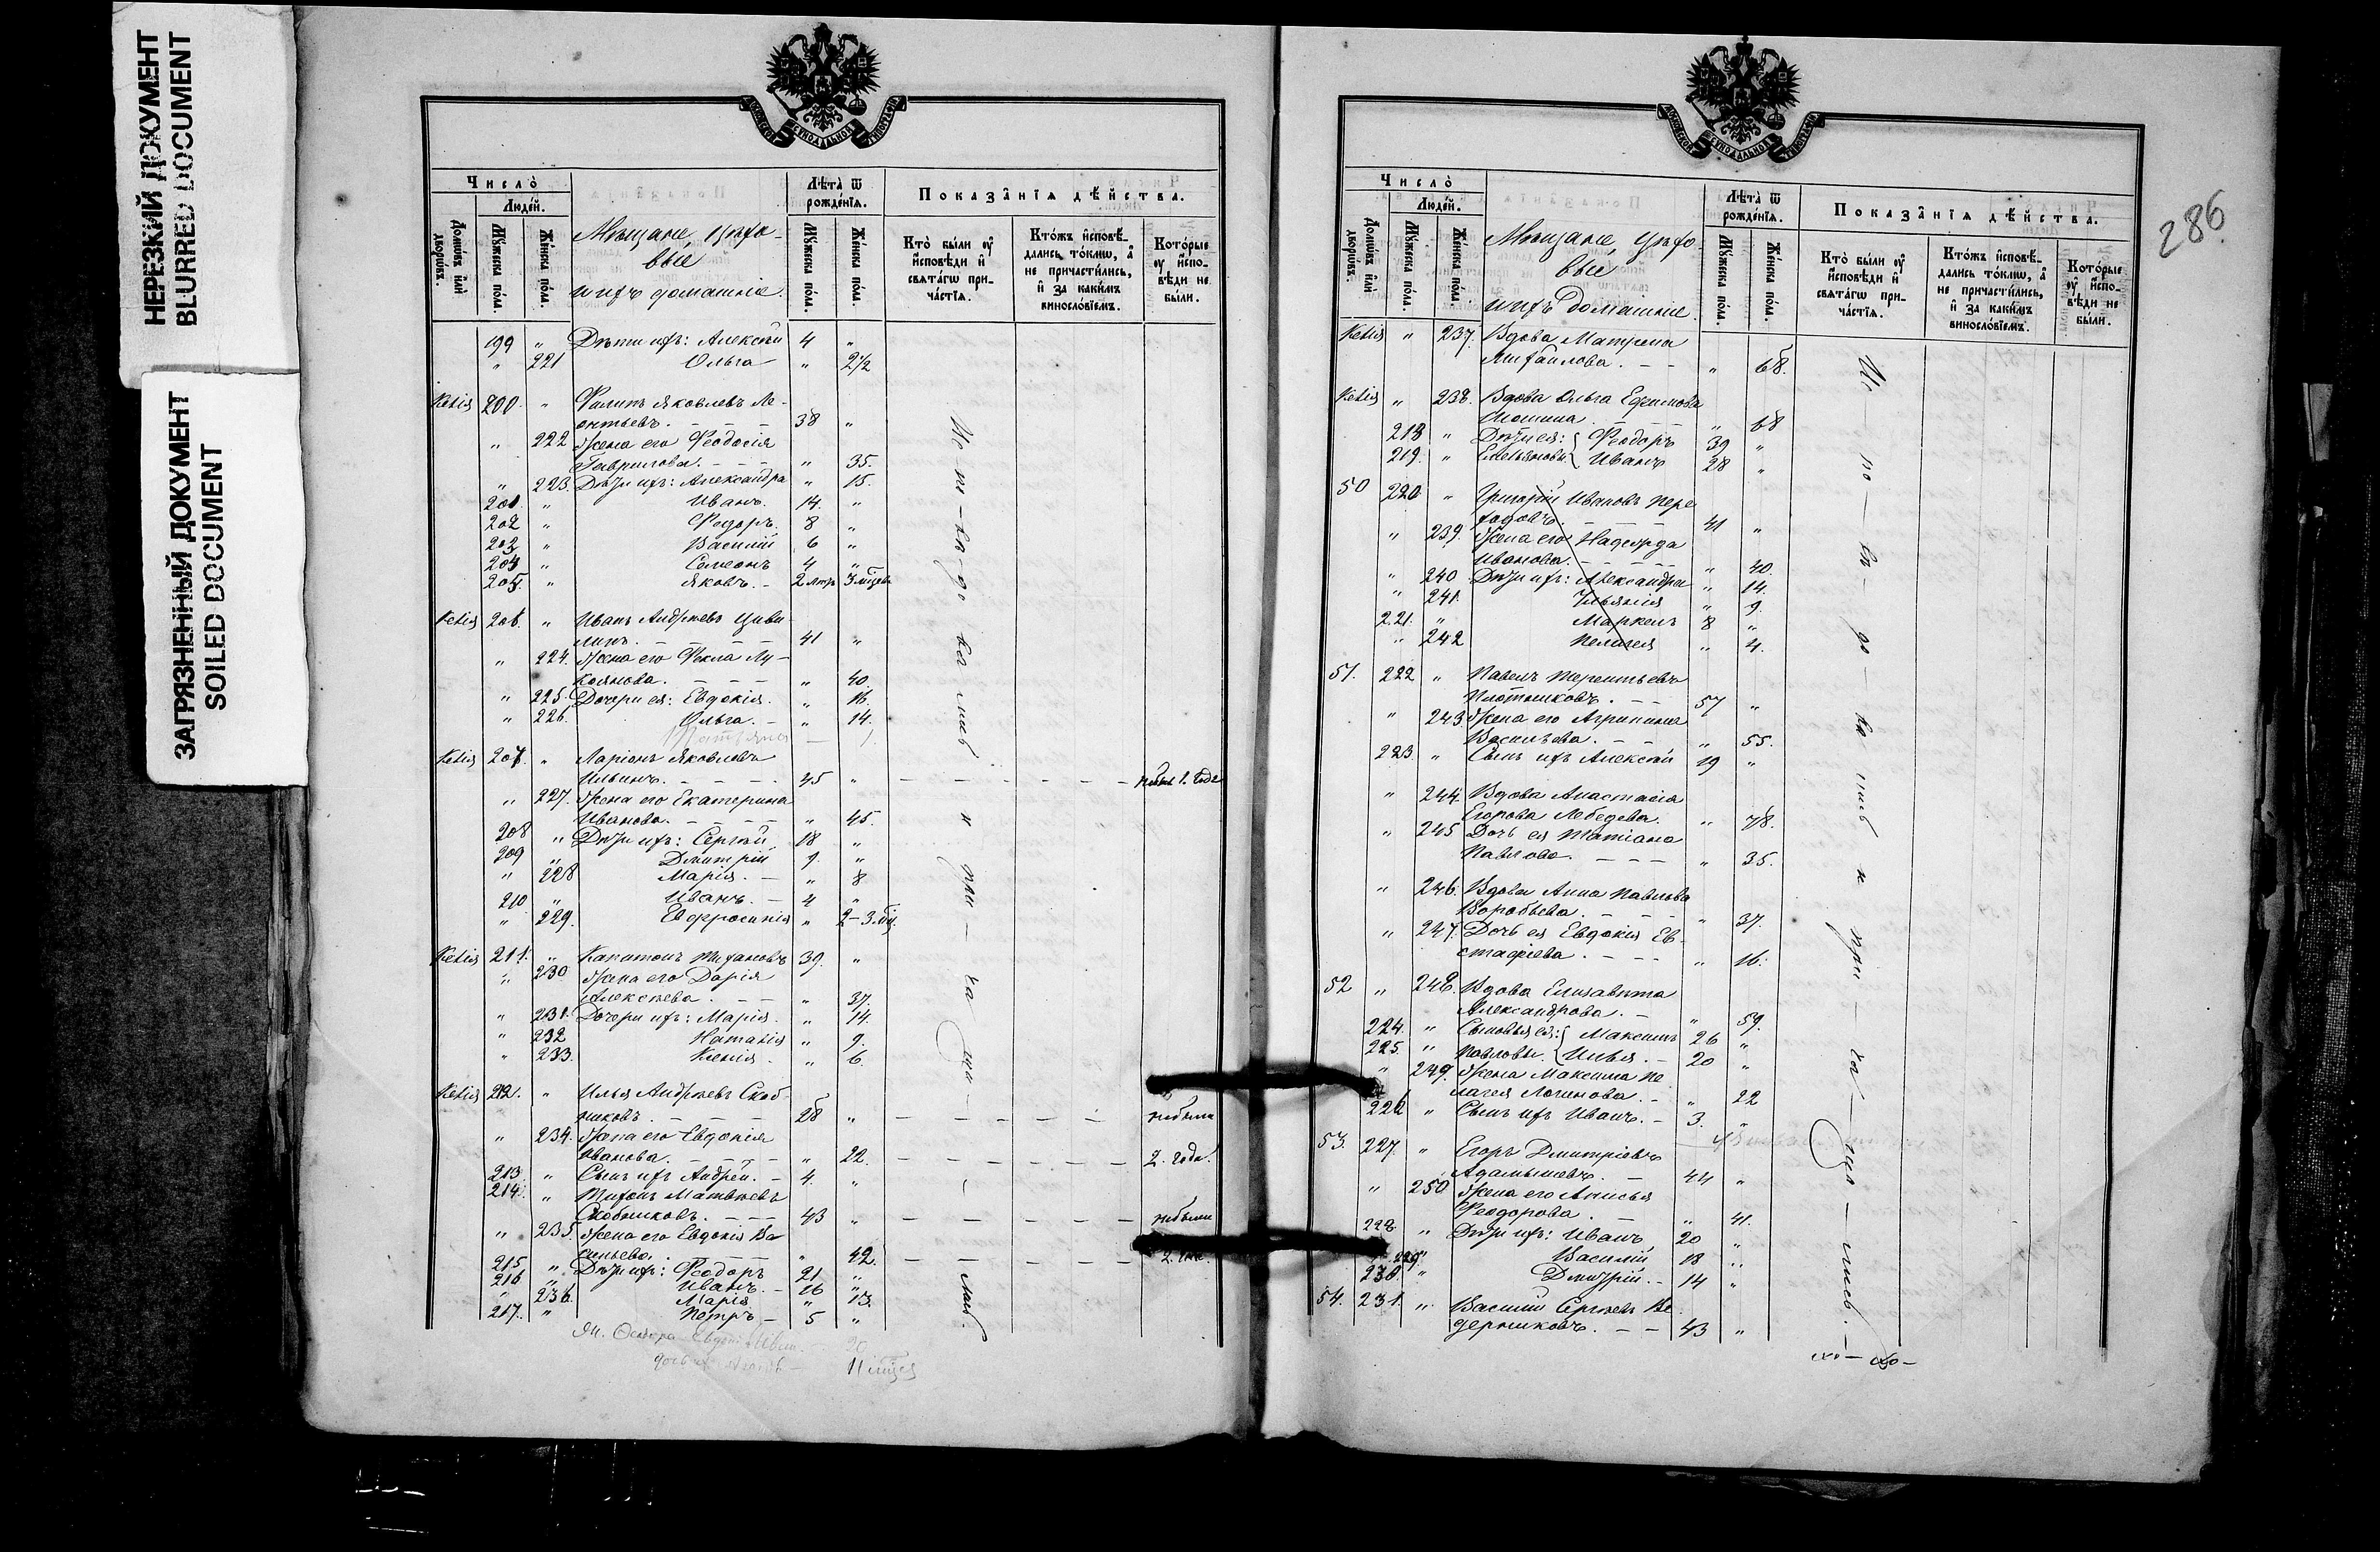 НЕРЕЗКИЙ ДОКУМЕНТ
BLURRED DOCUMENT
ЗАГРЯЗНЕННЫЙ ДОКУМЕНТ
SOILED DOCUMENT
МОСКОВСКОЙ СѴНОДАЛЬНОЙ ТИПОГРАФІИ
Число̀
Люде́й.
Домѡ́въ и҆лѝ дворѡ́въ.
Мꙋ́жеска по́ла.
Же́нска по́ла.
Мѣщане, цехо-
вые
и ихъ домашніе.
Лѣ́та ѿ рожде́нїѧ.
Мꙋ́жеска по́ла.
Же́нска по́ла.
Показа̑нїѧ дѣ́йства.
Кто̀ бы́ли ᲂу҆ и҆сповѣ́ди и҆ свѧта́гѡ прича́стїѧ.
Кто́жъ и҆сповѣ́дались то́кмѡ, а҆ не причасти́лись, и҆ за каки́мъ виносло́вїемъ.
Кото́рые ᲂу҆ и҆сповѣ́ди не бы́ли.
199 " Дѣти ихъ: Алексѣй 4 "
" 221 Ольга " 2½
Келія 200. " Филипъ Яковлевъ Ле-
онтьевъ. 38 "
" 222 Жена его Феодосія
Гаврилова. " 35.
" 223. Дѣти ихъ: Александра " 15.
201. " Иванъ. 14. "
202 " Федоръ. 8 "
203 " Василій 6 "
204 " Семеонъ 4 "
205. " Яковъ. 2
Келія 206. " Иванъ Андреевъ Циви-
линъ. 41 "
" 224. Жена его Фекла Лу-
коянова. " 40.
" 225. Дочери ея: Евдокія. " 16.
" 226. Ольга. " 14.
Келія 207. " Ларіонъ Яковлевъ
Ильинъ. 45 " 
" 227. Жена его Екатерина
Иванова. " 45.
208 " Дѣти ихъ: Сергѣй 18 "
209 " Дмитрій 9. "
" 228 Марія. " 8
210 " Иванъ. 4 "
" 229. Евфросинія " 2
Келія 211. " Капитонъ Тихановъ 39. "
" 230 Жена его Дарія
Алексѣева. " 37.
" 231. Дочери ихъ: Марія. " 14.
" 232 Наталія " 9.
" 233. Ксенія. " 6.
Келія 212. " Илья Андреевъ Скоб-
никовъ. 28 " небыли
" 234. Жена его Евдокія
Иванова. " 22. 2. года.
213. " Сынъ ихъ Андрей. 4. "
214. " Тихонъ Матвѣевъ
Скобниковъ. 43 " небыли
" 235. Жена его Евдокія Ва-
сильева. " 42. 2. года.
215. " Дѣти ихъ: Феодоръ 21 "
216 " Иванъ. 16 "
" 236. Марія " 13.
217. " Петръ 5 "
Испо-вѣ-до-ва-лись и при-ча-ща-лись.
286
МОСКОВСКОЙ СѴНОДАЛЬНОЙ ТИПОГРАФІИ
Число̀
Люде́й.
Домѡ́въ и҆лѝ дворѡ́въ.
Мꙋ́жеска по́ла.
Же́нска по́ла.
Мѣщане, цехо-
вые
и ихъ домашніе.
Лѣ́та ѿ рожде́нїѧ.
Мꙋ́жеска по́ла.
Же́нска по́ла.
Показа̑нїѧ дѣ́йства.
Кто̀ бы́ли ᲂу҆ и҆сповѣ́ди и҆ свѧта́гѡ прича́стїѧ.
Кто́жъ и҆сповѣ́дались то́кмѡ, а҆ не причасти́лись, и҆ за каки́мъ виносло́вїемъ.
Кото́рые ᲂу҆ и҆сповѣ́ди не бы́ли.
Келія " 237. Вдова Матрена
Михайлова. " 68.
Келія " 238. Вдова Ольга Ефимова
" 68
218 " Дѣти ея: Феодоръ 39 "
219. " Емельяновы. Иванъ 28 "
50 220 " Григорій Ивановъ Пере-
ходовъ. 41 "
" 239. Жена его Надежда
Иванова. " 40.
" 240 Дѣти ихъ: Александра " 14.
" 241. Ульянія " 9.
221. " Маркелъ 8 "
" 242 Пелагея " 4.
51. 222 " Павелъ Терентьевъ
Плотниковъ. 57 "
" 243 Жена его Агрипина
Васильева. " 55.
223 " Сынъ ихъ Алексѣй 19 "
" 244. Вдова Анастасія
Егорова Лебедева. " 78.
" 245 Дочь ея Татіана
Павлова. " 35.
" 246. Вдова Анна Павлова
Воробьева. " 37.
" 247. Дочь ея Евдокія Ев-
стафіева. " 16.
52 " 248. Вдова Елизавета
Александрова. " 59.
224. " Сыновья ея: Максимъ 26 "
225. " Павловы. Илья. 20 "
" 249. Жена Максима Пе-
лагея Логинова. " 22
226 " Сынъ ихъ Иванъ. 3. "
53. 227. " Егоръ Дмитріевъ
Адамышевъ. 44 "
" 250 Жена его Анисья
Феодорова. " 41.
228. " Дѣти ихъ: Иванъ 20 "
229. " Василій 18 "
230. " Дмитрій. 14 "
54. 231. " Василій Сергѣевъ Ве-
дерниковъ. 43 "
Ис-по-вѣ-до-ва-лись и при-ча-ща-лись.